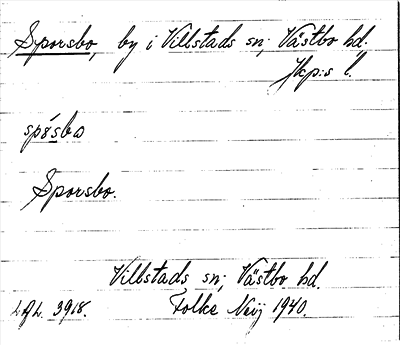 Sporsbo, by i Villstads sn; Västbo hd.
Jkp:s l.
spo̤sbo
Sporsbo.
Villstads sn; Västbo hd.
LAL. 3918. Folke Neij 1940.